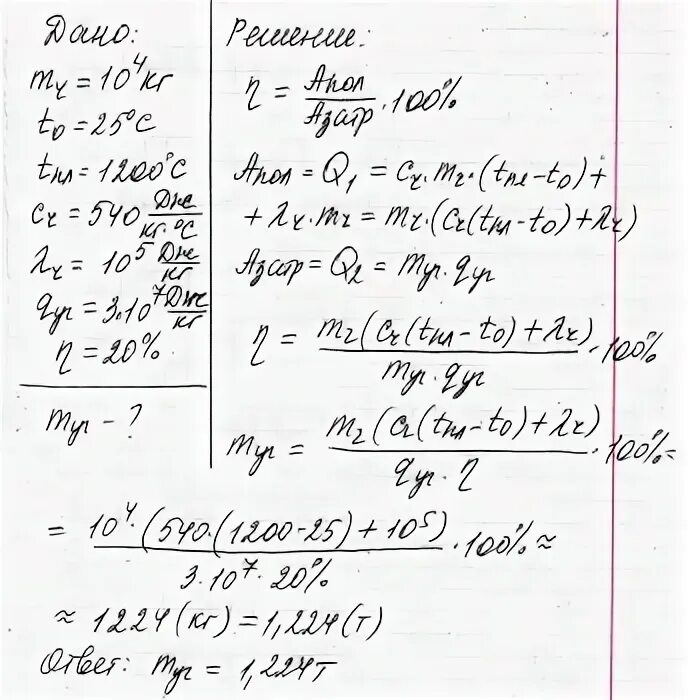 Дано:
mч = 10⁴кг
t₀ = 25°C
tпл = 1200°C
cч = 540 Дж/кг·°C
λч = 10⁵ Дж/кг
qуг = 3·10⁷ Дж/кг
η = 20%
mуг - ?
Решение:
η = Aпол/Aзатр · 100%
Aпол = Q₁ = cч·mч·(tпл-t₀)+
+ λч·mч = mч·(cч(tпл-t₀)+λч)
Aзатр = Q₂ = mуг·qуг
η = mч(cч(tпл-t₀)+λч)/mуг·qуг · 100%
mуг = mч(cч(tпл-t₀)+λч)/qуг·η · 100% =
= 10⁴·(540·(1200-25)+10⁵)/3·10⁷·20% · 100% ≈
≈ 1224(кг) = 1,224(т)
Ответ: mуг = 1,224т